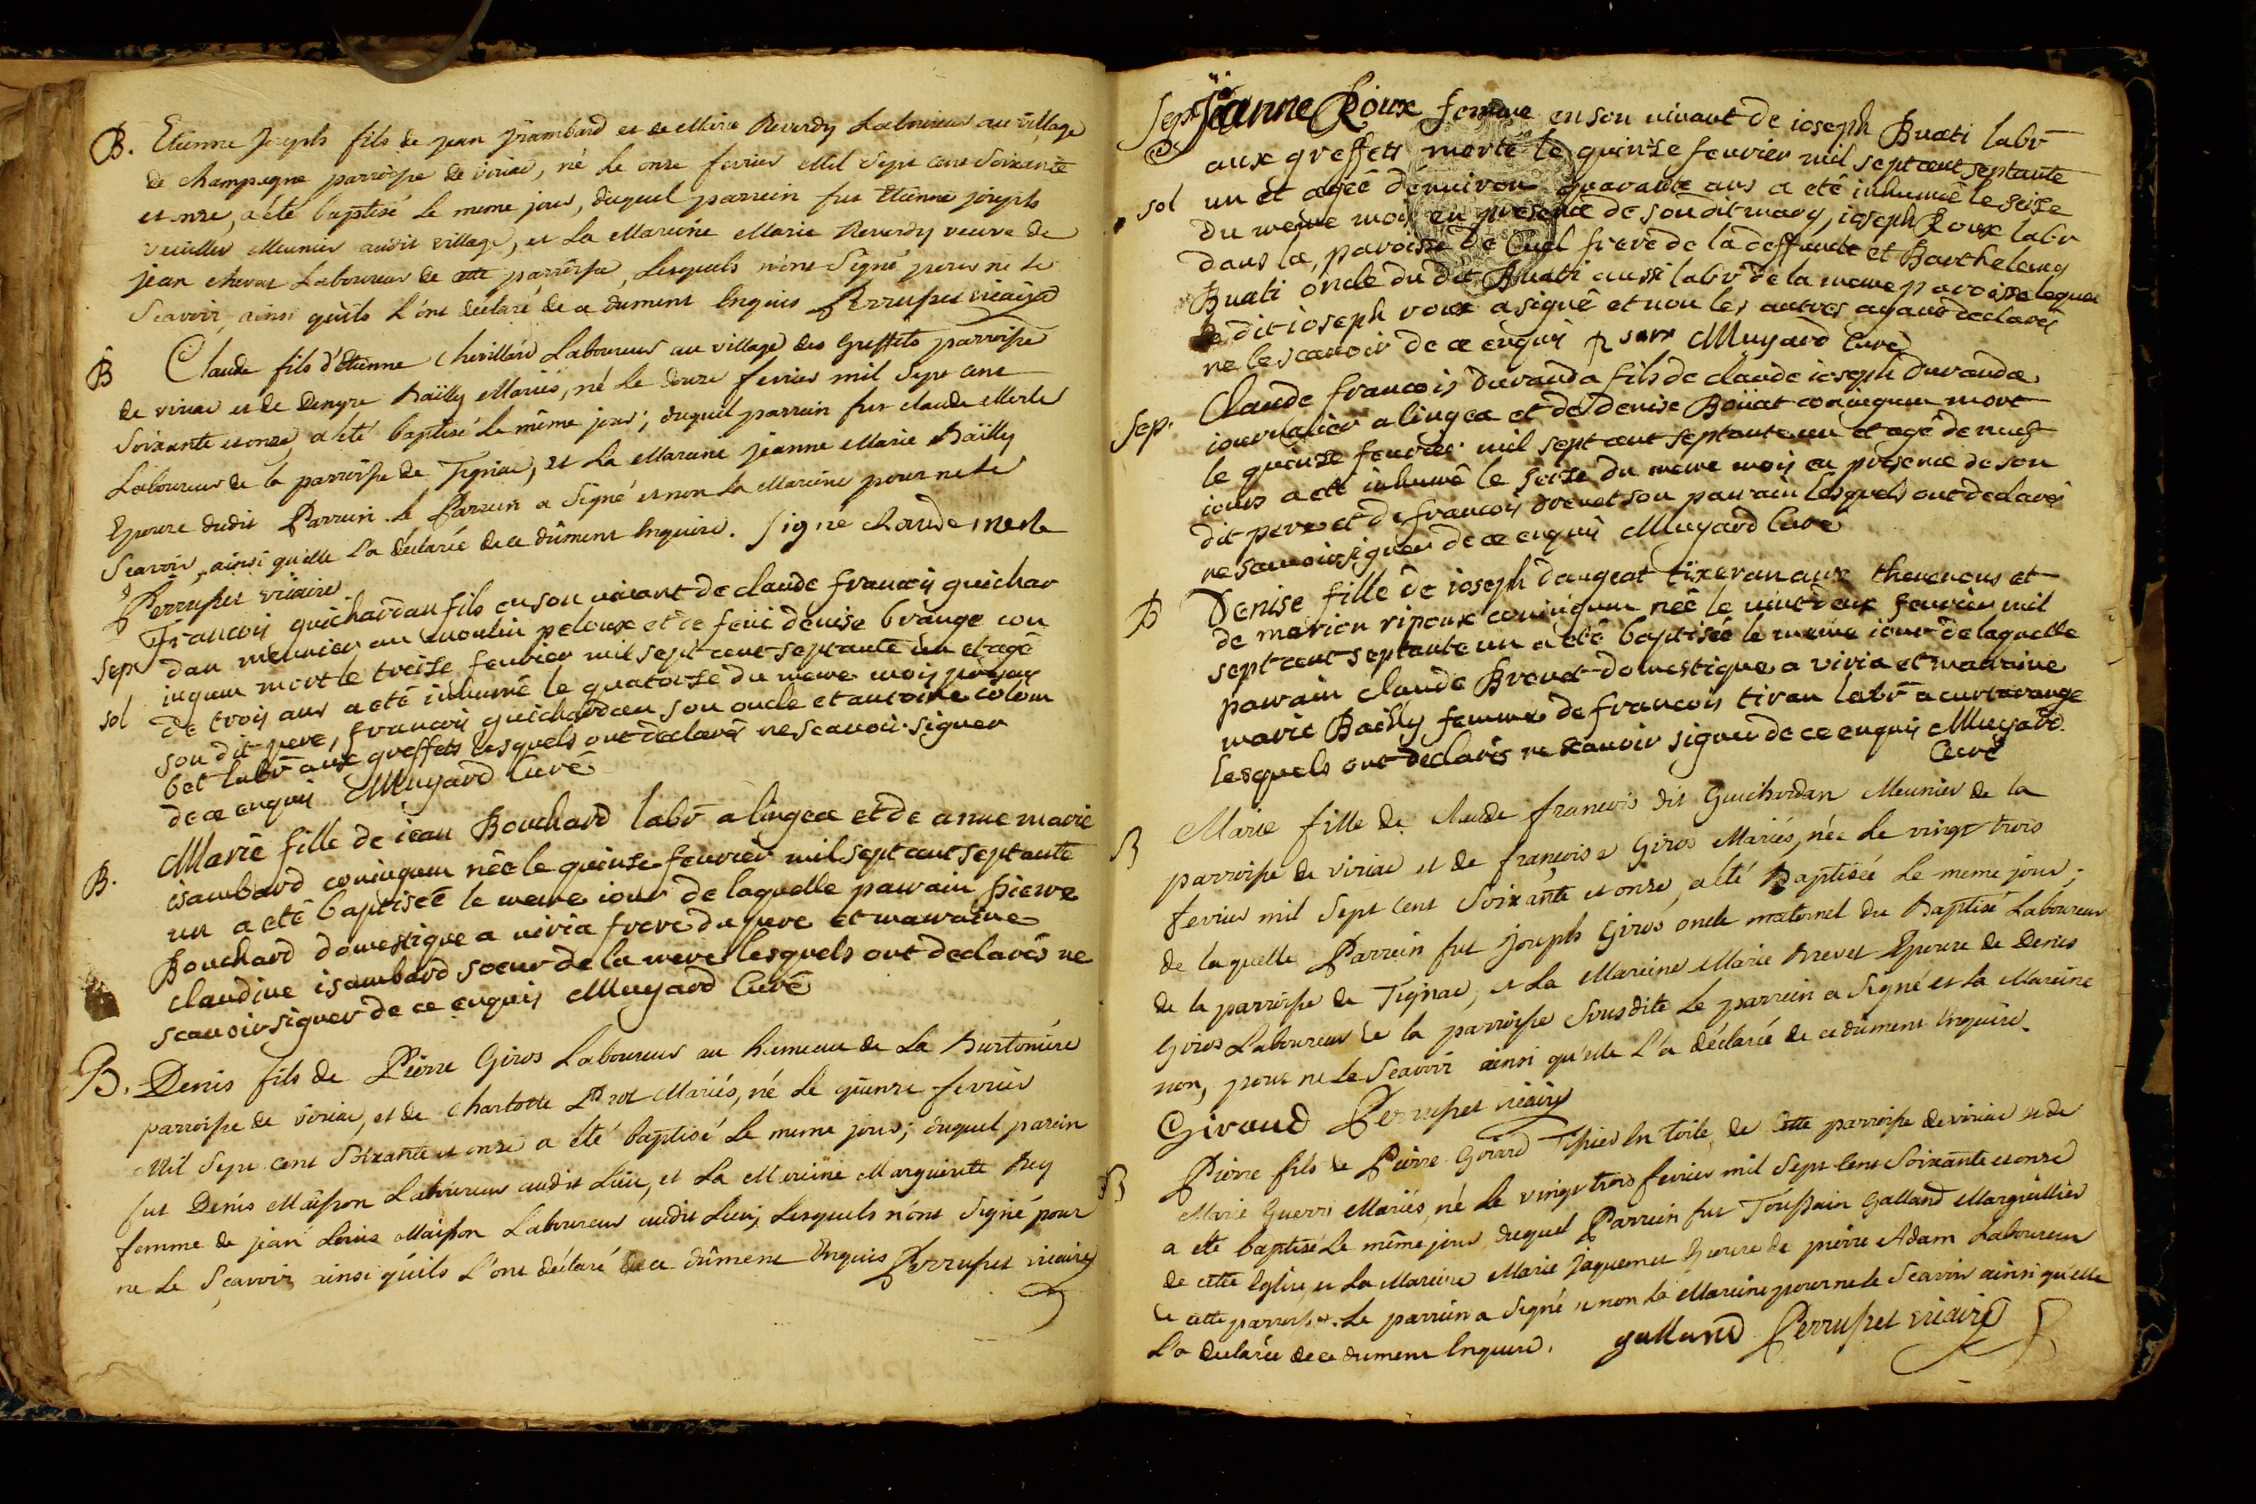 B. Etienne Joseph fils de jean jzambard et de Marie Reverdy Laboureur au village
de champagne parroisse de viriac, né le onze fevrier Mil Sept cent Soixante
et onze, a été baptisé le meme jour, duquel parrein fut Etienne joseph
Meunier audit village, et La Mareine Marie Reverdy veuve de
jean chevat Laboureur de cette parroisse, Lesquels n'ont Signé pour ne le
Scavoir, ainsi quils L'ont declaré de ce dument Enquis Perruset vicaire
B Claude fils d'Etienne Chevillard Laboureur au village des Greffets parroisse
de viriac et de Denyse Bailly Mariés, né Le douze fevrier mil Sept cent
Soixante et onze, a été baptisé le même jour; duquel parrain fut claude Merle
Laboureur de la parroisse de Tignac, et La Mareine jeanne Marie Bailly
Epouse dudit Parrein. le Parrein a Signé et non La Mareine pour ne le
Scavoir, ainsi qu'elle L'a déclaré de ce dûment Enquise. Signé Claude merle
Perruset vicaire
Sep francois guichardan fils en son vivant de claude francois guichar
dan meunier au moulin peloux et de feüe denise brange con
sol iugum mort le treize feuvrier mil sept cent septante un et agé
de trois ans a eté inhumé le quatorze du meme mois
son dit pere, francois guichardan son oncle et antoine colom
bet labr aux greffets lesquels ont declarés ne scavoir signer
de ce enquis Muyard Curé
B. Marie fille de iean Bouchard labr a lingea et de anne marie
isambard coniugum née le quinze feuvrier mil sept cent septante
un a eté baptisée le meme iour de laquelle parrain pierre
Bouchard domestique a viria frere du pere et marraine
claudine isambard soeur de la mere lesquels ont declarés ne
scavoir signer de ce enquis Muyard Curé
B. Denis fils de Pierre Giros Laboureur au hameau de La Burtoniere
parroisse de viriac, et de Charlotte Prot Mariés, né Le quinze fevrier
Mil Sept cent Soixante et onze a été baptisé Le meme jour; duquel parein
fut Denis Maisson Laboureur audit Lieu, et La Mareine Marguerite Rey
femme de jean Louis Maisson Laboureur audit Lieu, Lesquels n'ont Signé pour
ne Le Scavoir ainsi quils L'ont déclaré de ce dûment Enquis Perruset vicaire
Sep Jeanne Roux femme en son vivant de ioseph Buati labr
aux greffets morte le quinze feuvrier mil sept cent septante
sol un et agée denviron quarante ans a eté inhumée le seize
du meme mois en presence de son dit mary, ioseph Roux labr
dans la paroisse de Cuel frere de la deffunte et Barthelemy
Buati oncle du dit Buati aussi labr de la meme paroisse lequel
dit ioseph roux a signé et non les autres ayant declarés
ne le scavoir de ce enquis Muyard Curé
Sep. Claude francois duranda fils de claude ioseph duranda
iournalier a lingea et de denise Boivat coniugum mort
le quinze feuvrier mil sept cent septante un et agé de neuf
iours a eté inhumé le seize du meme mois en presence de son
dit pere et de francois drevet son parrain lesquels ont declarés
ne scavoir signer de ce enquis Muyard Curé
B Denise fille de ioseph dangeat tixeran aux thevenons et
de marion ripoux coniugum née le vint deux feuvrier mil
sept cent septante un a eté baptisée le meme iour de laquelle
parrain claude Brevet domestique a viria et marraine
marie Bailly femme de francois tiran labr a curtarange
lesquels ont declarés ne scavoir signer de ce enquis Muyard
Curé
B Marie fille de Claude francois dit Guichardan Meunier de la
parroisse de viriac et de françoise Giros Mariés, née Le vingt trois
fevrier mil Sept cent Soixante et onze, a été Baptisée Le meme jour,
de laquelle Parrein fut joseph Giros oncle maternel du Baptisé Laboureur
de la parroisse de Tignac, et La Mareine Marie Brevet Epouse de Denis
Giros Laboureur de la parroisse Susdite Le parrein a Signé et La Mareine
non, pour ne Le Scavoir ainsi qu'elle L'a déclaré de ce dument Enquise.
Giroud Perruset vicaire
B Pierre fils de Pierre Girard Tissier En toile, de Cette parroisse de viriac et de
Marie Guerre Mariés, né Le vingt trois fevrier mil Sept Cent Soixante et onze
a eté baptisé Le même jour, duquel Parrein fut Toussain Galland Marguillier
de cette Eglise, et La Mareine Marie jaquemet Epouse de pierre Adam Laboureur
de cette parroisse. Le parrein a Signé et non La Mareine pour ne le Scavoir ainsi qu'elle
L'a declarée de ce dument Enquise. galland Perruset vicaire